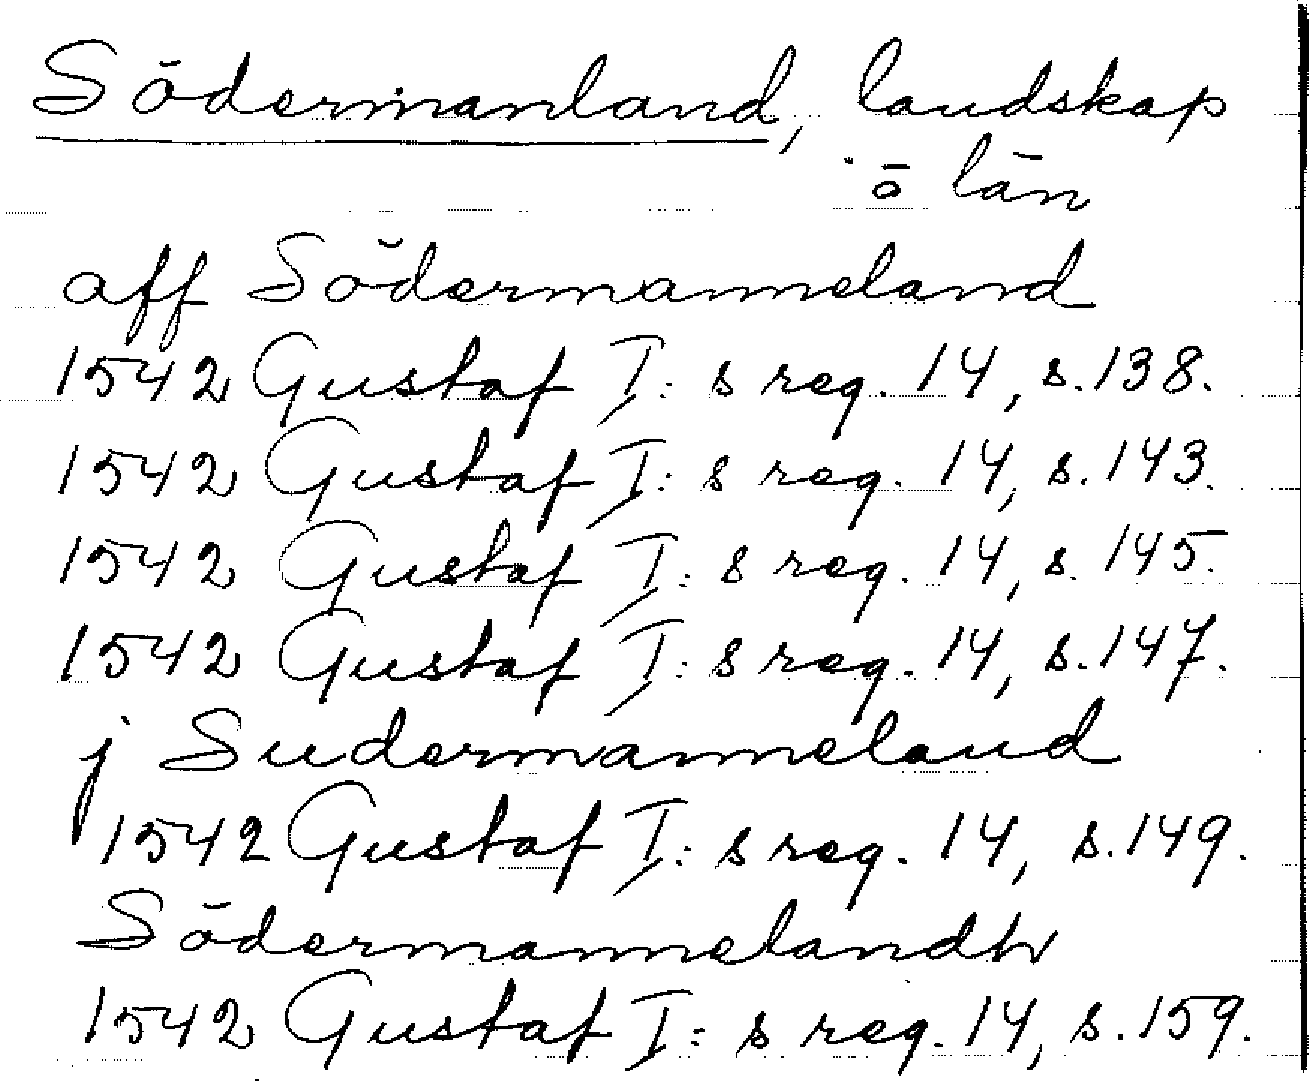 Södermanland, landskap
o län
aff Södermanneland
1542 Gustaf I:s reg. 14, s. 138.
1542 Gustaf I:s reg. 14, s. 143.
1542 Gustaf I:s reg. 14, s. 145.
1542 Gustaf I:s reg. 14, s. 147.
j Sudermanneland
1542 Gustaf I:s reg. 14, s. 149.
Södermannelandh
1542 Gustaf I:s reg. 14, s. 159.